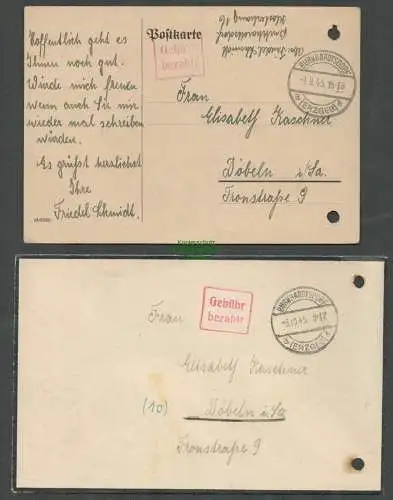 Hoffentlich geht es
Ihnen noch gut.
Würde mich freuen
wenn auch Sie mir
wieder mal schreiben
würden.
Es grüßt herzlichst
Ihre
Friedel Schmidt.
Postkarte
Gebühr
bezahlt
Abs. Friedel Schmidt
Frau
Elisabeth Kaschner
Döbeln i/Sa.
Fronstraße 9
Gebühr
bezahlt
Frau
Elisabeth Kaschner
(10) Döbeln i. Sa
Fronstraße 9